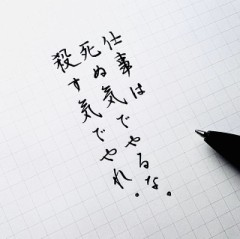 仕事は
死ぬ気でやるな。
殺す気でやれ。